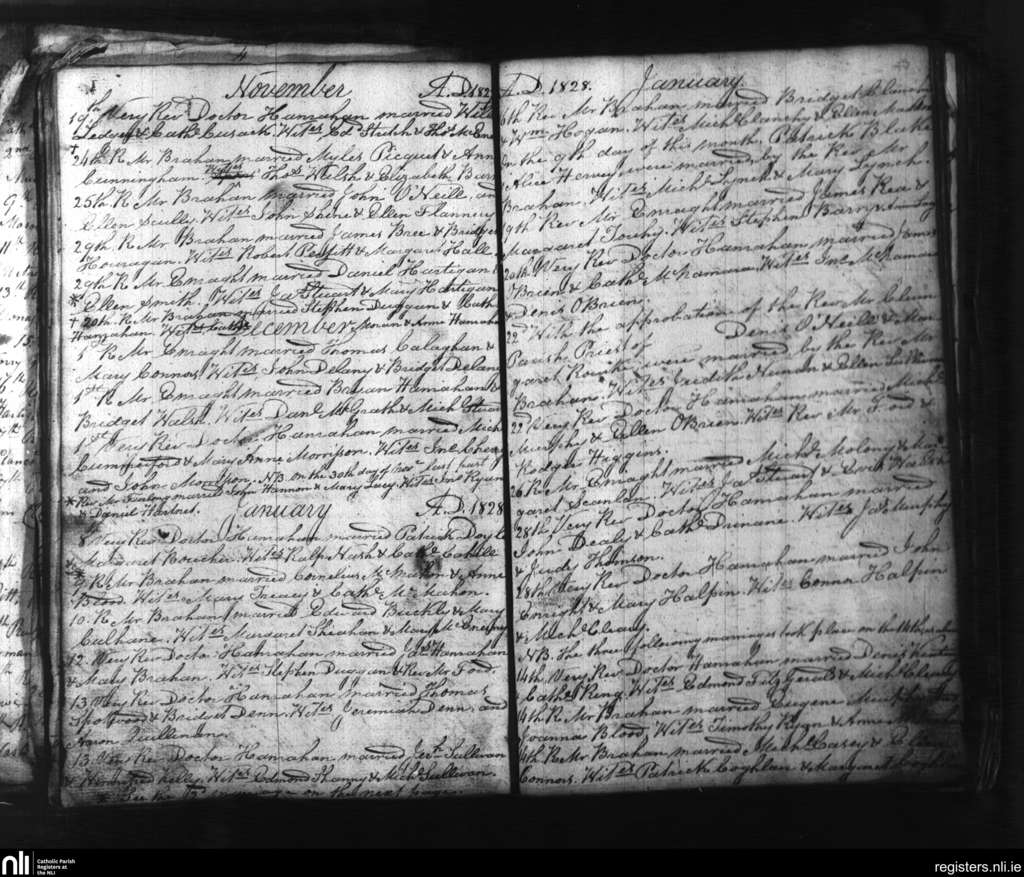 4
November A.D. 182
19th Very Revd Doctor Hanrahan married Will
& Cathe Cusack. Wit.es Ed
24th R Mr Brahan married Myles Picquet & Ann
Cunningham. Wit.es Thos Welsh & Elizabeth Burn
25th R Mr Brahan married John O'Neille, and
Ellen Scully. Wit.es John & Ellen Flannery
29th R. Mr Brahan married James Bree & Bridget
Hourigan. Wit.es Robert & Margaret Hall
29th R. Mr Enraght married Daniel Hartigan
* Ellen Smith. Wit.es Jas Stuart & Mary Hartigan
+ 20th R. Mr Brahan married Stephen Duggan & Cathe
Hanrahan. Wit.es Moran & Anne Hanrahan
December
1st R Mr Enraght married Thomas Calaghan &
Mary Connors. Wit.es John Delany & Bridget Delany
1st R. Mr Enraght married Brian Hanrahan &
Bridget Walsh. Wit.es Danl McGrath & Mich
1st Very Revd Doctor Hanrahan married Mich
Cummerford & Mary Anne Morrison. Wit.es Jno
and John Morrison. NB. on the 30th day of Novr last past
* Rev. Mr married John Hannon & Mary Lucy. Wit.es Jno Ryan
& Daniel
January A.D. 1828
8 Very Revd Doctor Hanrahan married Patrick Doyle
Margaret Boucher. Wit.es Ralph Nash & Cathe Cahill
R. Mr Brahan married Cornelius McMahon & Anne
Blood. Wit.es Mary Treacy & Cathe McMahon.
10. R Mr Brahan married Edward Buckley & Mary
Culhane. Wit.es Margaret Sheahan & Mary
12. Very Revd Doctor Hanrahan married Jas Hanrahan
& Mary Brahan. Wit.es Stephen Duggan & Rev Mr Ford.
13. Very Rev Doctor Hanrahan married Thomas
& Bridget Denn. Wit.es Jeremiah Denn, and
Quillenan.
13. Very Rev Doctor Hanrahan married Sullivan
& Kelly. Wit.es Edmond & Michl Sullivan.
* See the marriage on the next page.
A.D. 1828. January
6th Rev. Mr Brahan married Bridget
Wm Hogan. Wit.es Michl Clanchy & Ellen
On the 9th day of this month, Patrick Blake
Alice Harvey were married by the Rev. Mr
Brahan. Wit.es Michl Lynch & Mary Lynch.
9th Rev Mr Enraght married James Rea &
Margaret Touhy. Wit.es Stephen Barry & Ann
20th Very Rev Doctor Hanrahan married James
O'Brien & Cathe McNamara. Wit.es Jno McNamara
& Denis O'Brien.
22d With the approbation of the Rev Mr
Parish Priest of Denis O'Neille & Mar
garet Rourke were married by the Rev. Mr
Brahan. Wit.es Judith & Ellen
22 Very Rev Doctor Hanrahan married Michl
Murphy & Ellen O'Brien. Wit.es Rev Mr Ford &
Rodger Higgins.
26 R. Mr Enraght married Michl Molony & Mar
garet Scanlan. Wit.es Jas Stuart & David
28th Very Rev Doctor Hanrahan married
John Dealy & Cathe Dunane. Wit.es Jas Murphy
& Jude Thomson.
28th Very Rev Doctor Hanrahan married John
Enright & Mary Halpin. Wit.es Connor Halpin
& Michl Cleary.
NB. The three following marriages took place on the 14th
14th. Very Rev Doctor Hanrahan married Denis
Cathe Ring. Wit.es Edmond Fitzgerald & Michl
14th R. Mr Brahan married Eugene
Joanna Blood; Wit.es Timothy Ryan & Anne
14th R. Mr Brahan married Michl Casey &
Connors. Wit.es Patrick Coghlan & Margaret Coghlan
nli
Catholic Parish
Registers at
the NLI
registers.nli.ie